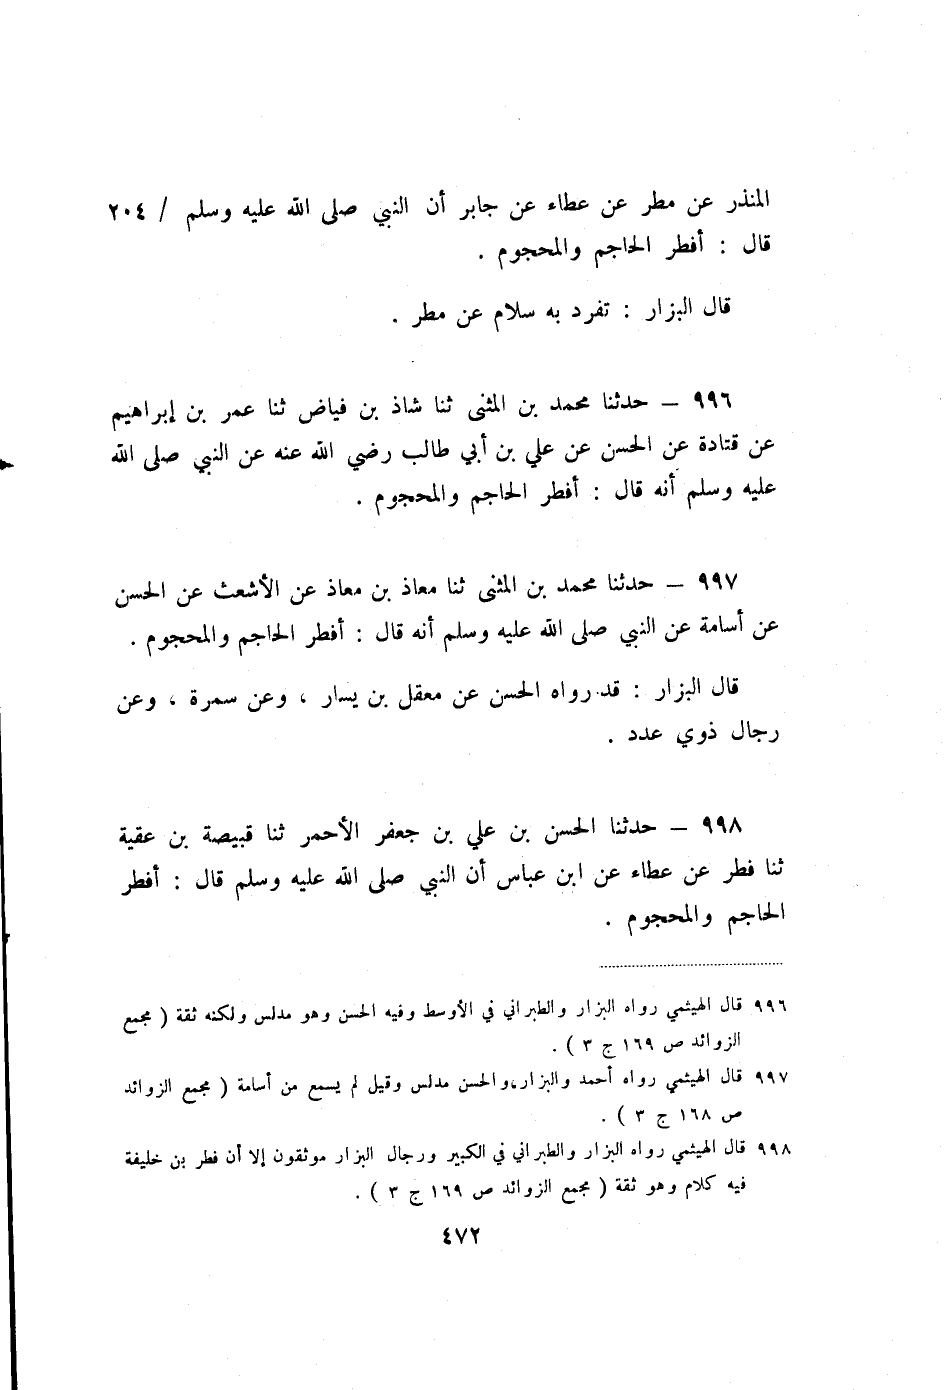 المنذر عن مطر عن عطاء عن جابر أن النبي صلى الله عليه وسلم / ٢٠٤
قال : أفطر الحاجم والمحجوم .
قال البزار : تفرد به سلام عن مطر .
٩٩٦ – حدثنا محمد بن المثنى ثنا شاذ بن فياض ثنا عمر بن إبراهيم
عن قتادة عن الحسن عن علي بن أبي طالب رضي الله عنه عن النبي صلى الله
عليه وسلم أنه قال : أفطر الحاجم والمحجوم .
٩٩٧ – حدثنا محمد بن المثنى ثنا معاذ بن معاذ عن الأشعث عن الحسن
عن أسامة عن النبي صلى الله عليه وسلم أنه قال : أفطر الحاجم والمحجوم .
قال البزار : قد رواه الحسن عن معقل بن يسار ، وعن سمرة ، وعن
رجال ذوي عدد .
٩٩٨ – حدثنا الحسن بن علي بن جعفر الأحمر ثنا قبيصة بن عقبة
ثنا فطر عن عطاء عن ابن عباس أن النبي صلى الله عليه وسلم قال : أفطر
الحاجم والمحجوم .
٩٩٦ قال الهيثمي رواه البزار والطبراني في الأوسط وفيه الحسن وهو مدلس ولكنه ثقة ( مجمع
الزوائد ص ١٦٩ ج ٣ ) .
٩٩٧ قال الهيثمي رواه أحمد والبزار،والحسن مدلس وقيل لم يسمع من أسامة ( مجمع الزوائد
ص ١٦٨ ج ٣ ) .
٩٩٨ قال الهيثمي رواه البزار والطبراني في الكبير ورجال البزار موثقون إلا أن فطر بن خليفة
فيه كلام وهو ثقة ( مجمع الزوائد ص ١٦٩ ج ٣ ) .
٤٧٢